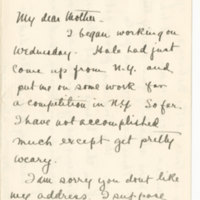 My dear Mother-
I began working on
Wednesday. Hale had just
come up from N.Y. and
put me on some work for
a competition in NY So far.
I have not accomplished
much except get pretty
weary.
I am sorry you dont like
my address. I suppose